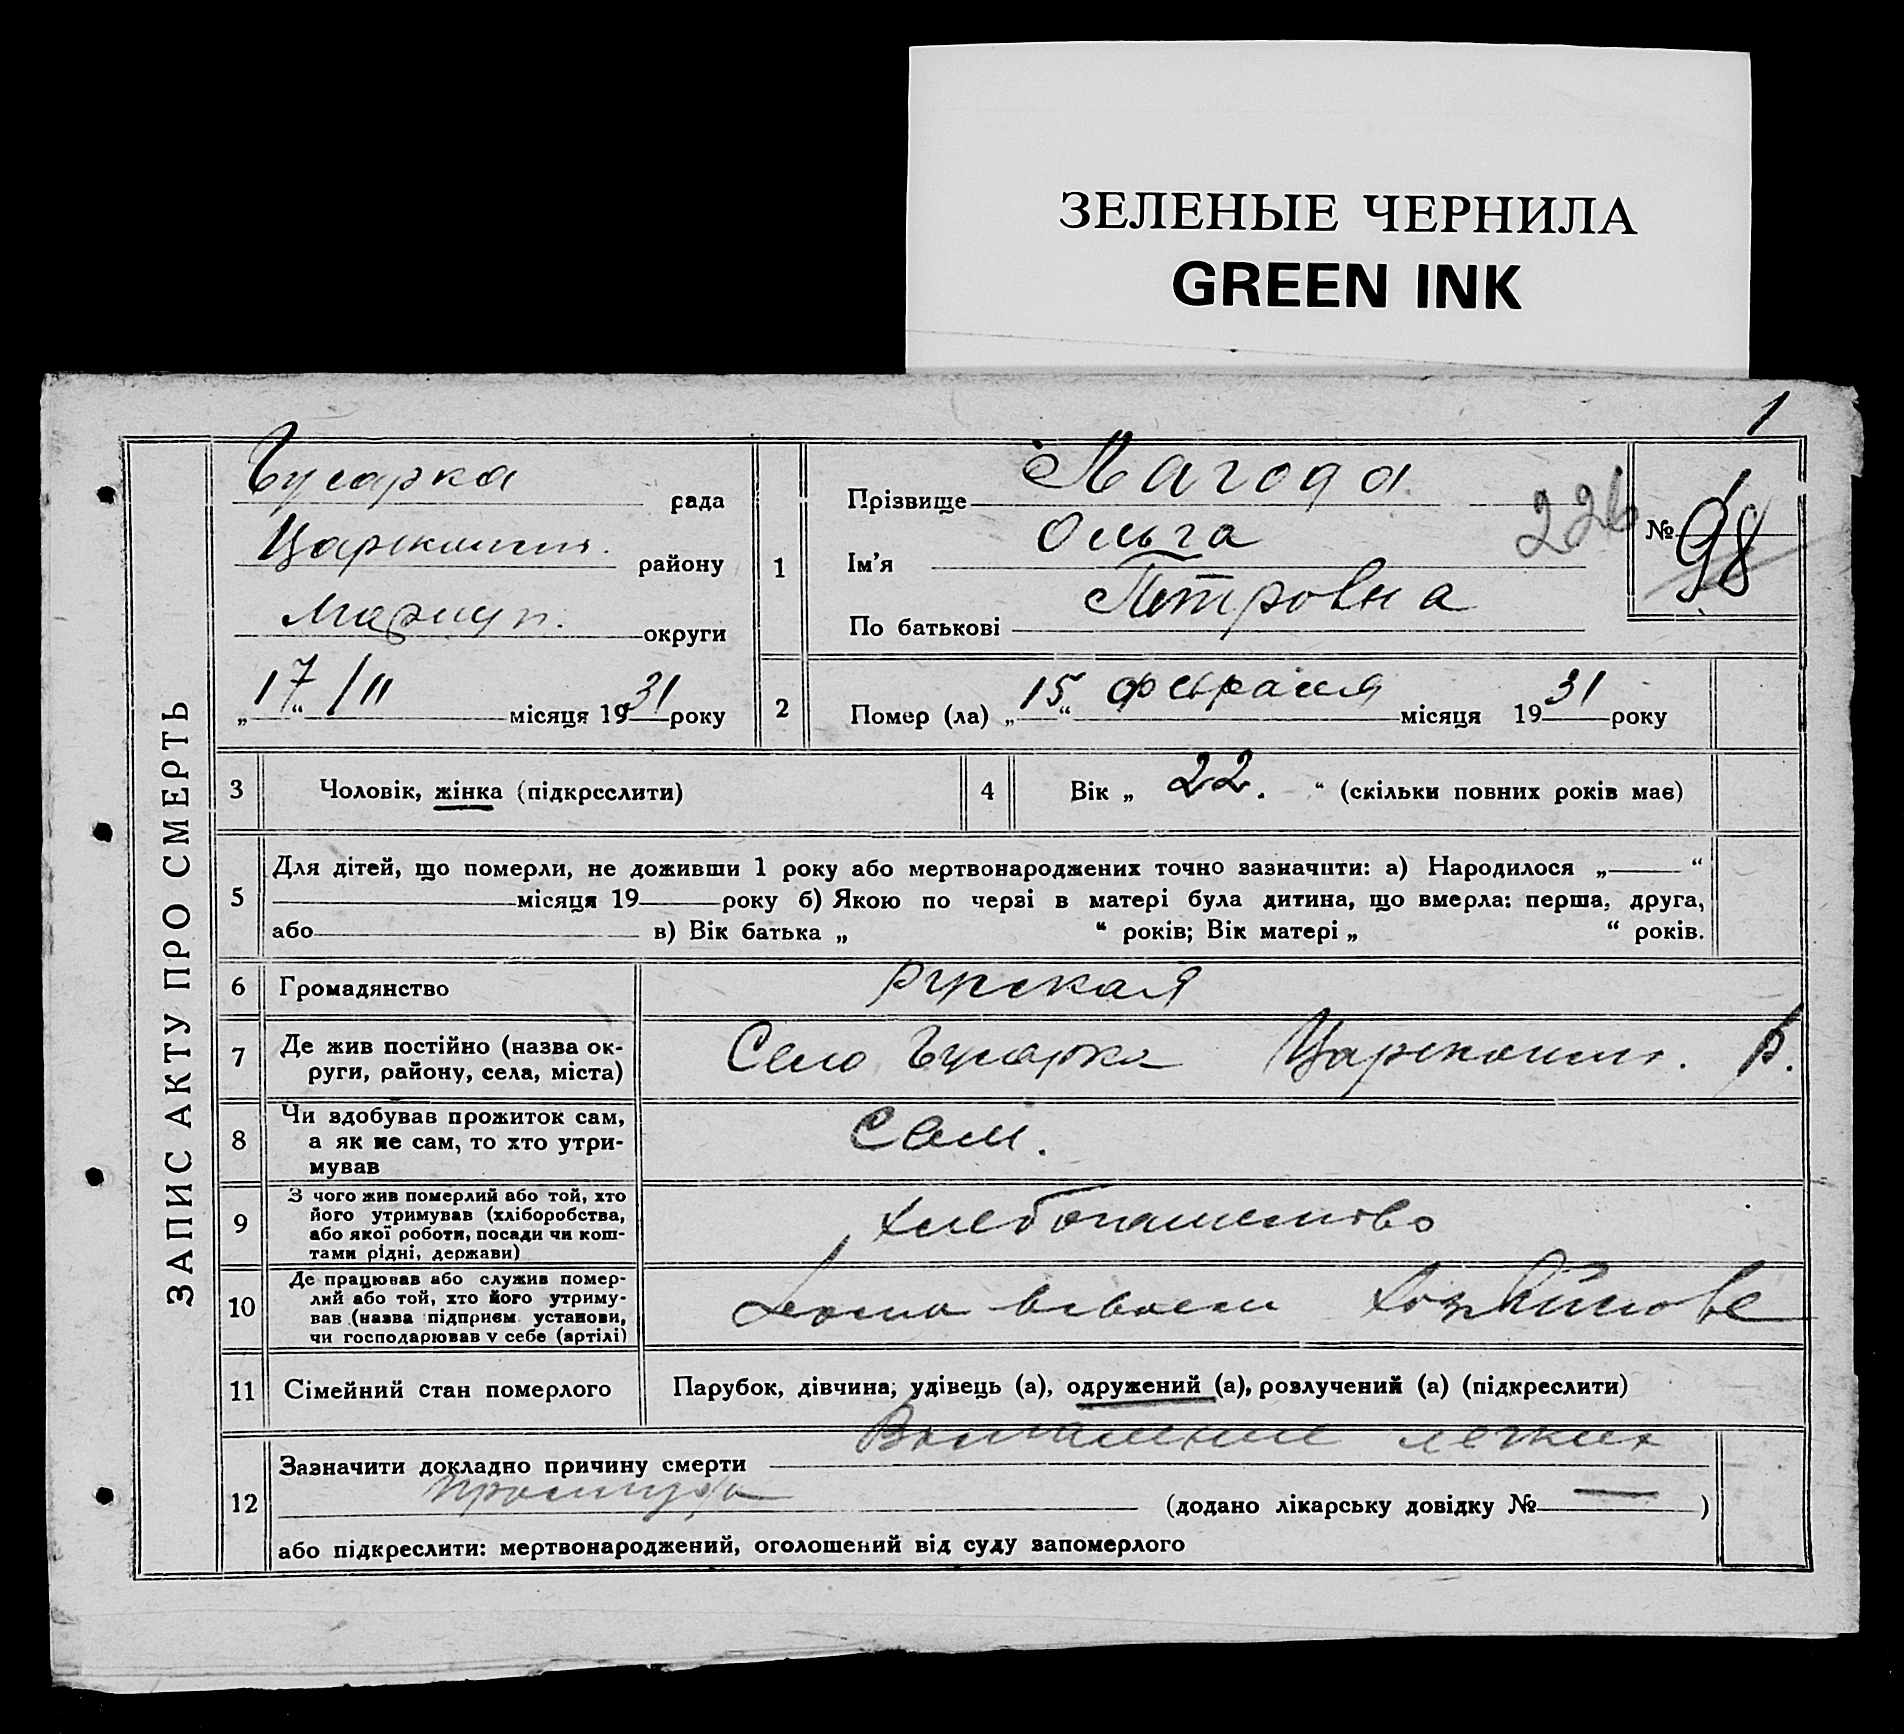 ЗЕЛЕНЫЕ ЧЕРНИЛА
GREEN INK
1
ЗАПИС АКТУ ПРО СМЕРТЬ
рада
району
Мариуп. округи
„17“ /II місяця 1931 року
1
Прізвище Лагода
Ім'я Ольга
По батькові Петровна
226
№ 98
2
Помер (ла) „15“ февраля місяця 1931 року
3
Чоловік, жінка (підкреслити)
4
Вік „ 22. “ (скільки повних років має)
5
Для дітей, що померли, не доживши 1 року або мертвонароджених точно зазначити: а) Народилося „ “
місяця 19 року б) Якою по черзі в матері була дитина, що вмерла: перша, друга,
або в) Вік батька „ “ років; Вік матері „ “ років.
6
Громадянство
русская
7
Де жив постійно (назва ок-
руги, району, села, міста)
Село р.
8
Чи здобував прожиток сам,
а як не сам, то хто утри-
мував
Сам.
9
З чого жив померлий або той, хто
його утримував (хліборобства,
або якої роботи, посади чи кош-
тами рідні, держави)
хлебопашество
10
Де працював або служив помер-
лий або той, хто його утриму-
вав (назва підприєм. установи,
чи господарював у себе (артілі)
11
Сімейний стан померлого
Парубок, дівчина, удівець (а), одружений (а), розлучений (а) (підкреслити)
12
Зазначити докладно причину смерти Воспаление легких
простуда (додано лікарську довідку № — )
або підкреслити: мертвонароджений, оголошений від суду запомерлого